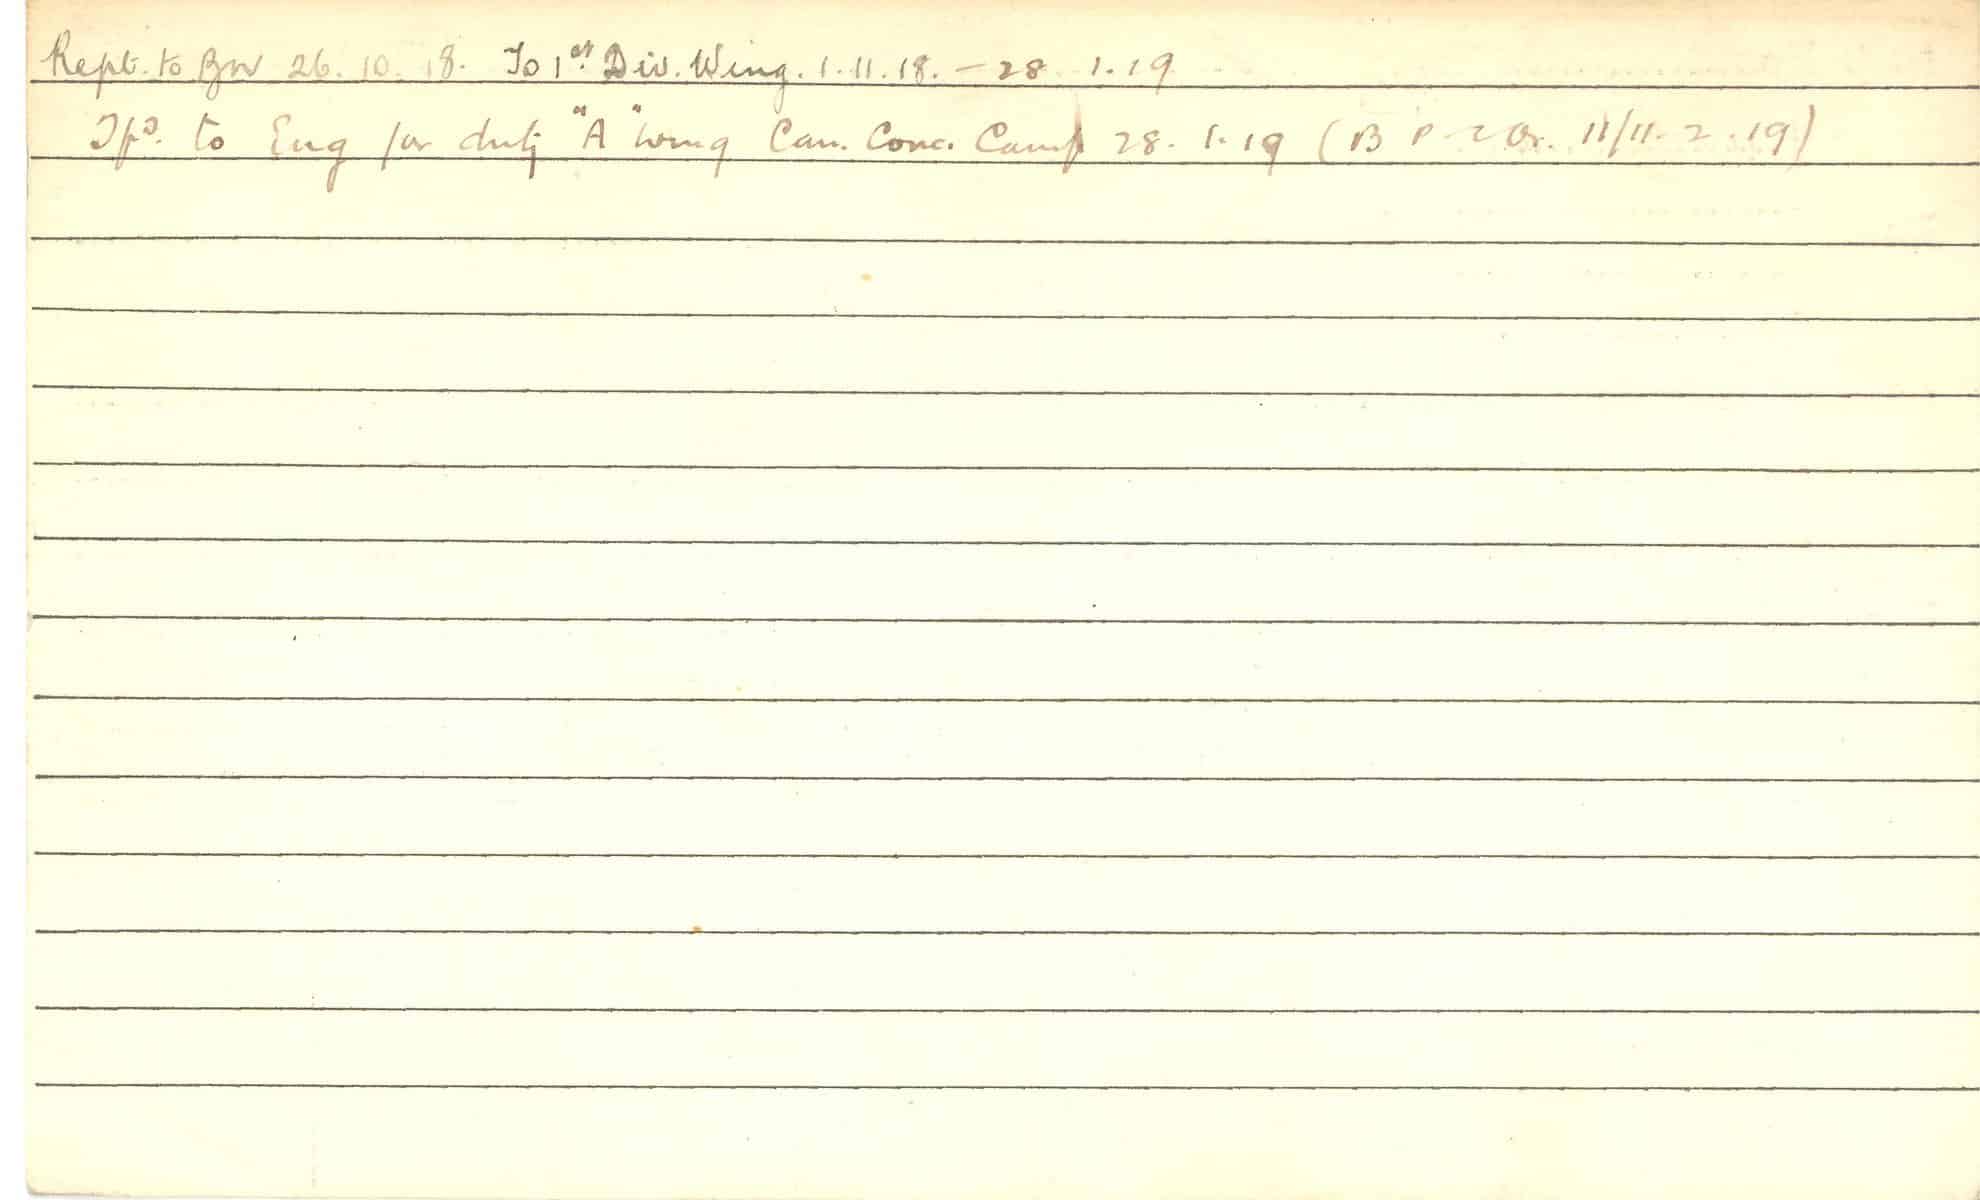 Rept. to Bn 26. 10. 18. To 1st Div. Wing. 1. 11. 18. – 28 1. 19
Tfd. to Eng for duty "A" wing Can. Conc. Camp 28. 1. 19 (B P 2 Or. 11/11. 2. 19)